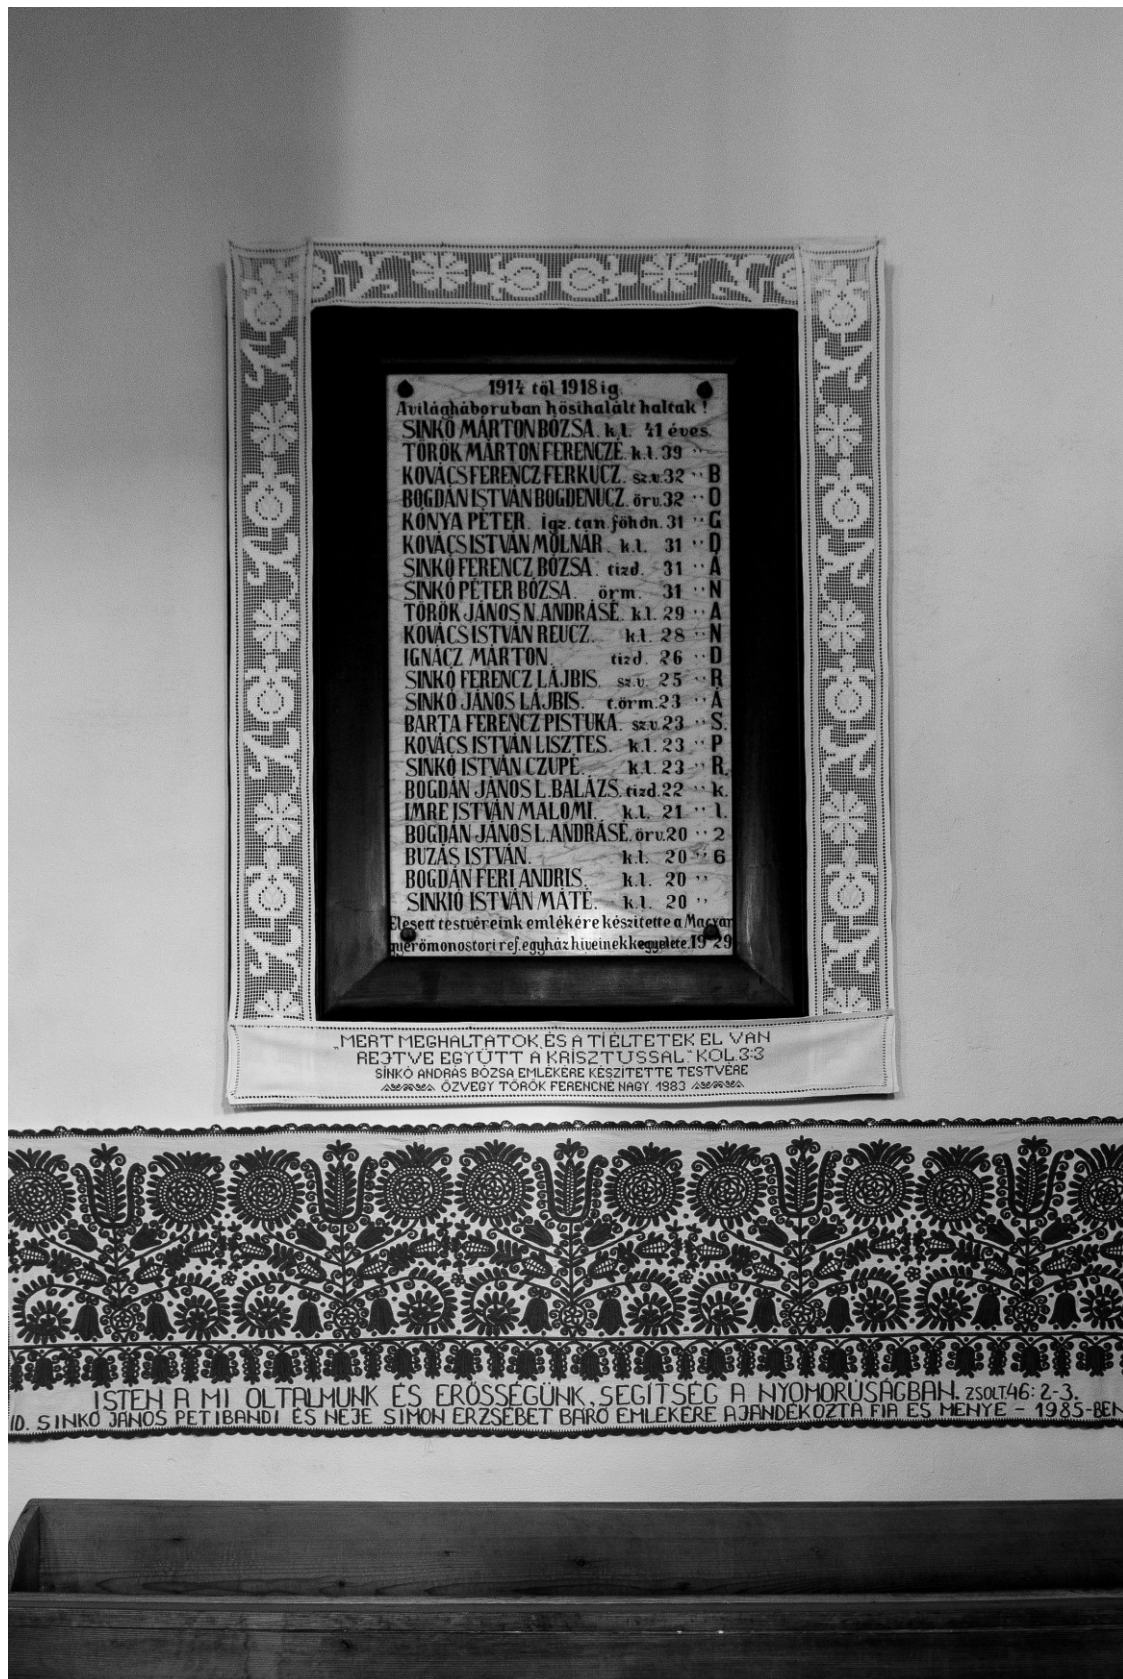 1914 től 1918 ig
A világháboruban hősi halált haltak !
SINKÓ MÁRTON BÓZSA. k.l. 41 éves.
TÖRÖK MÁRTON FERENCZÉ. k.l. 39 "
KOVÁCS FERENCZ FERKUCZ. sz.v. 32 " B
BOGDÁN ISTVÁN BOGDENUCZ. örv. 32 " O
KÓNYA PÉTER. igz. tan. föhdn. 31 " G
KOVÁCS ISTVÁN MOLNÁR. k.l. 31 " D
SINKÓ FERENCZ BÓZSA. tizd. 31 " Á
SINKÓ PÉTER BÓZSA. örm. 31 " N
TÖRÖK JÁNOS N. ANDRÁSÉ. k.l. 29 " A
KOVÁCS ISTVÁN REUCZ. k.l. 28 " N
IGNÁCZ MÁRTON. tizd. 26 " D
SINKÓ FERENCZ LÁJBIS. sz.v. 25 " R
SINKÓ JÁNOS LÁJBIS. t.örm. 23 " Á
BARTA FERENCZ PISTUKA. sz.v. 23 " S.
KOVÁCS ISTVÁN LISZTES. k.l. 23 " P
SINKÓ ISTVÁN CZUPÉ. k.l. 23 " R.
BOGDÁN JÁNOS L. BALÁZS. tizd. 22 " k.
IMRE ISTVÁN MALOMI. k.l. 21 " l.
BOGDÁN JÁNOS L. ANDRÁSÉ. örv. 20 " 2
BUZÁS ISTVÁN. k.l. 20 " 6
BOGDÁN FERI ANDRIS. k.l. 20 "
SINKIÓ ISTVÁN MÁTÉ. k.l. 20 "
Elesett testvéreink emlékére készitette a Magyar
gyerömonostori ref. egyház hiveinek kegyelete. 1929
„MERT MEGHALTATOK, ÉS A TI ÉLTETEK EL VAN
REJTVE EGYÜTT A KRISZTUSSAL." KOL. 3:3
SINKÓ ANDRÁS BÓZSA EMLÉKÉRE KÉSZÍTETTE TESTVÉRE
ÖZVEGY TÖRÖK FERENCNÉ NAGY. 1983
ISTEN A MI OLTALMUNK ÉS ERŐSSÉGÜNK, SEGÍTSÉG A NYOMORÚSÁGBAN. ZSOLT. 46: 2-3.
ID. SINKÓ JÁNOS PETIBANDI ÉS NEJE SIMON ERZSÉBET BARÓ EMLÉKÉRE AJÁNDÉKOZTA FIA ÉS MENYE - 1985-BEN